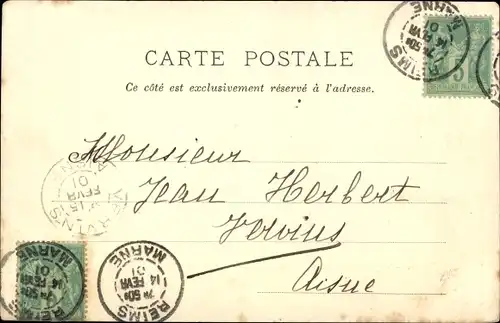 CARTE POSTALE
Ce côté est exclusivement réservé à l'adresse.
Monsieur
Jean Herbert
Vervins
Aisne
REIMS
7E 50M
14 FEVR
01
MARNE
REIMS
7E 50
14 FEVR
01
MARNE
REIMS
7E 50
14 FEVR
01
MARNE
VERVINS
15
FEVR
01
5